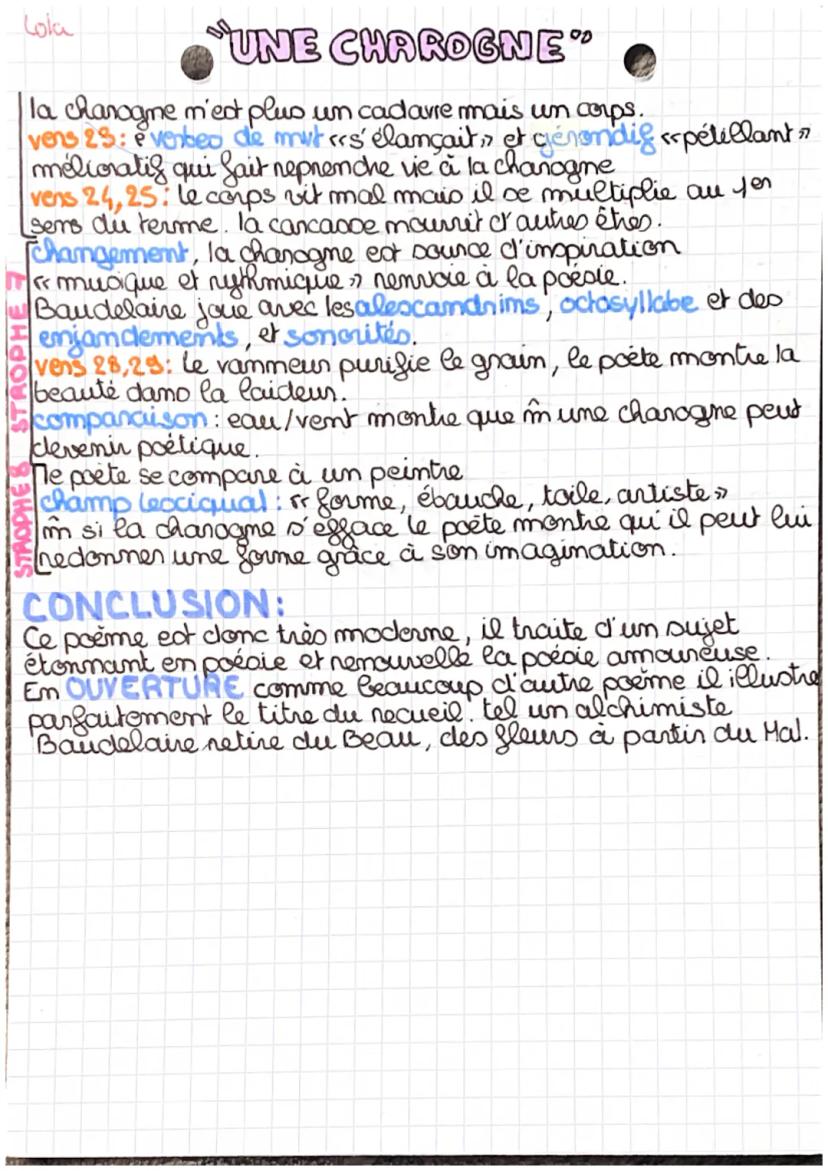 Lola
"UNE CHAROGNE"
la charogne n'est plus un cadavre mais un corps.
vers 23: verbes de mvt «s'élançait» et gérondif «pétillant»
mélioratif qui fait reprendre vie à la charogne
vers 24, 25: le corps vit mal mais il se multiplie au 1er
sens du terme. la carcasse nourrit d'autres êtres.
changement, la charogne est source d'inspiration
«musique et rythmique» renvoie à la poésie.
Baudelaire joue avec les alexcandrins, octosyllabe et des
enjambements, et sonorités.
vers 28,29: le vanneur purifie le grain, le poète montre la
beauté dans la laideur.
comparaison: eau/vent montre que m̂ une charogne peut
devenir poétique.
STROPHE 7
le poète se compare à un peintre
champ lexciqual: «forme, ébauche, toile, artiste»
m̂ si la charogne s'efface le poète montre qu'il peut lui
redonner une forme grâce à son imagination.
STROPHE 8
CONCLUSION:
Ce poème est donc très moderne, il traite d'un sujet
étonnant en poésie et renouvelle la poésie amoureuse.
En OUVERTURE comme beaucoup d'autre poème il illustre
parfaitement le titre du recueil. tel un alchimiste
Baudelaire retire du Beau, des fleurs à partir du Mal.